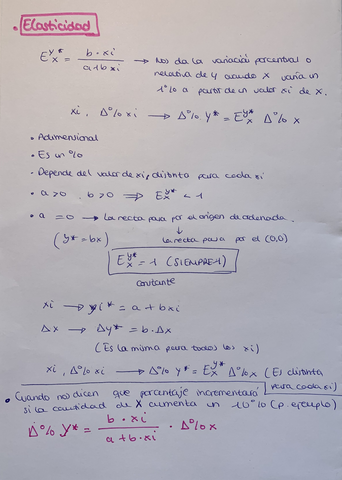 • Elasticidad
E_x^{y*} = b·xi / a+b xi → Nos da la variació porcentual o
relativa de Y cuando X varía un
1% a partir de un valor xi de X.
xi, Δ% xi → Δ% Y* = E_x^{y*} Δ% X
• Adimensional
• Es un %
• Depende del valor de xi, distinta para cada xi
• a>0, b>0 ⇒ E_x^{y*} < 1
• a =0 → la recta pasa por el origen de ordenada.
(y*=bx) ↓ la recta pasa por el (0,0)
E_x^{y*} = 1 (SIEMPRE 1)
constante
xi → yi* = a + bxi
Δx → Δy* = b·Δx
(Es la misma para todos los xi)
xi, Δ% xi → Δ% Y* = E_x^{y*} Δ% x (Es distinta
para cada xi)
• Cuando nos dicen que porcentaje incrementará
si la cantidad de X aumenta un 10% (p.ejemplo)
Δ% Y* = b·xi / a+b·xi · Δ% x